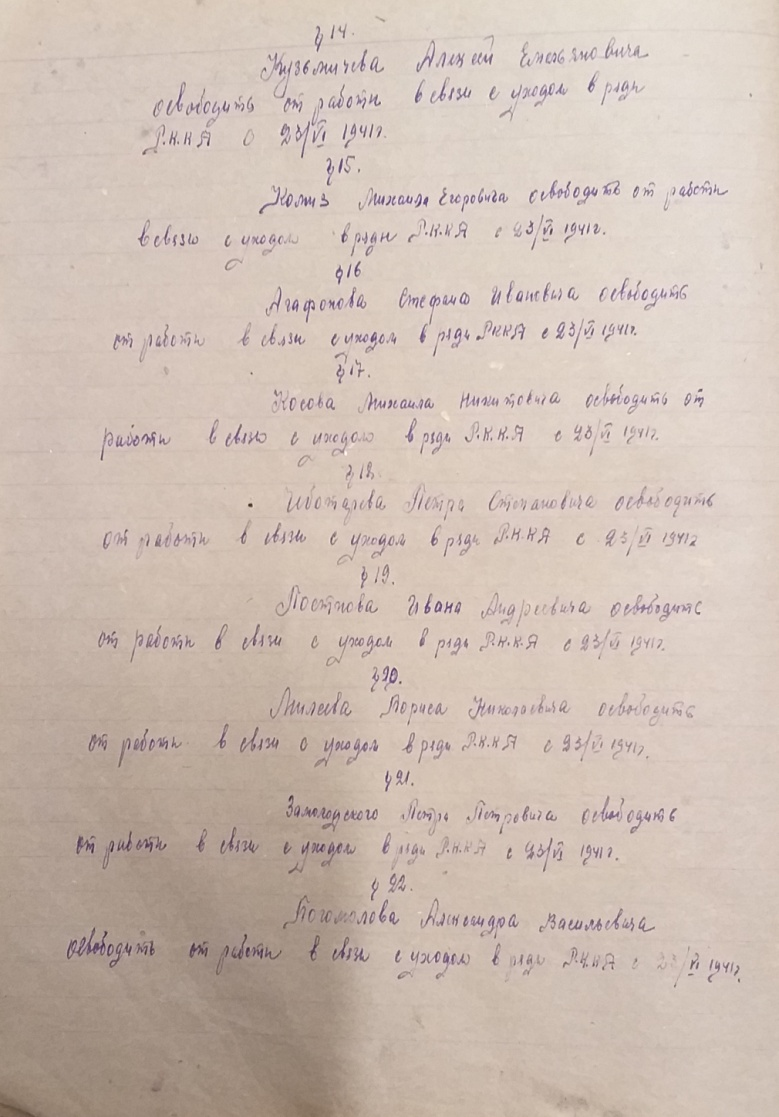 § 14.
Кузьмичева Алексей Емельяновича
освободить от работы в связи с уходом в ряды
Р.К.К.А с 23/VI 1941г.
§ 15.
Михаила Егоровича освободить от работы
в связи с уходом в ряды Р.К.К.А с 23/VI 1941г.
§ 16
Агафонова Стефана Ивановича освободить
от работы в связи с уходом в ряды РККА с 23/VI 1941г.
§ 17.
Косова Михаила Никитовича освободить от
работы в связи с уходом в ряды Р.К.К.А с 23/VI 1941г.
§ 18.
Чеботарева Петра Степановича освободить
от работы в связи с уходом в ряды Р.К.К.А с 23/VI 1941г
§ 19.
Постнова Ивана Андреевича освободить
от работы в связи с уходом в ряды Р.К.К.А с 23/VI 1941г.
§ 20.
Милеева Бориса Николаевича освободить
от работы в связи с уходом в ряды Р.К.К.А с 23/VI 1941г.
§ 21.
Петра Петровича освободить
от работы в связи с уходом в ряды Р.К.К.А с 23/VI 1941г.
§ 22.
Богомолова Александра Васильевича
освободить от работы в связи с уходом в ряды Р.К.К.А с 23/VI 1941г.